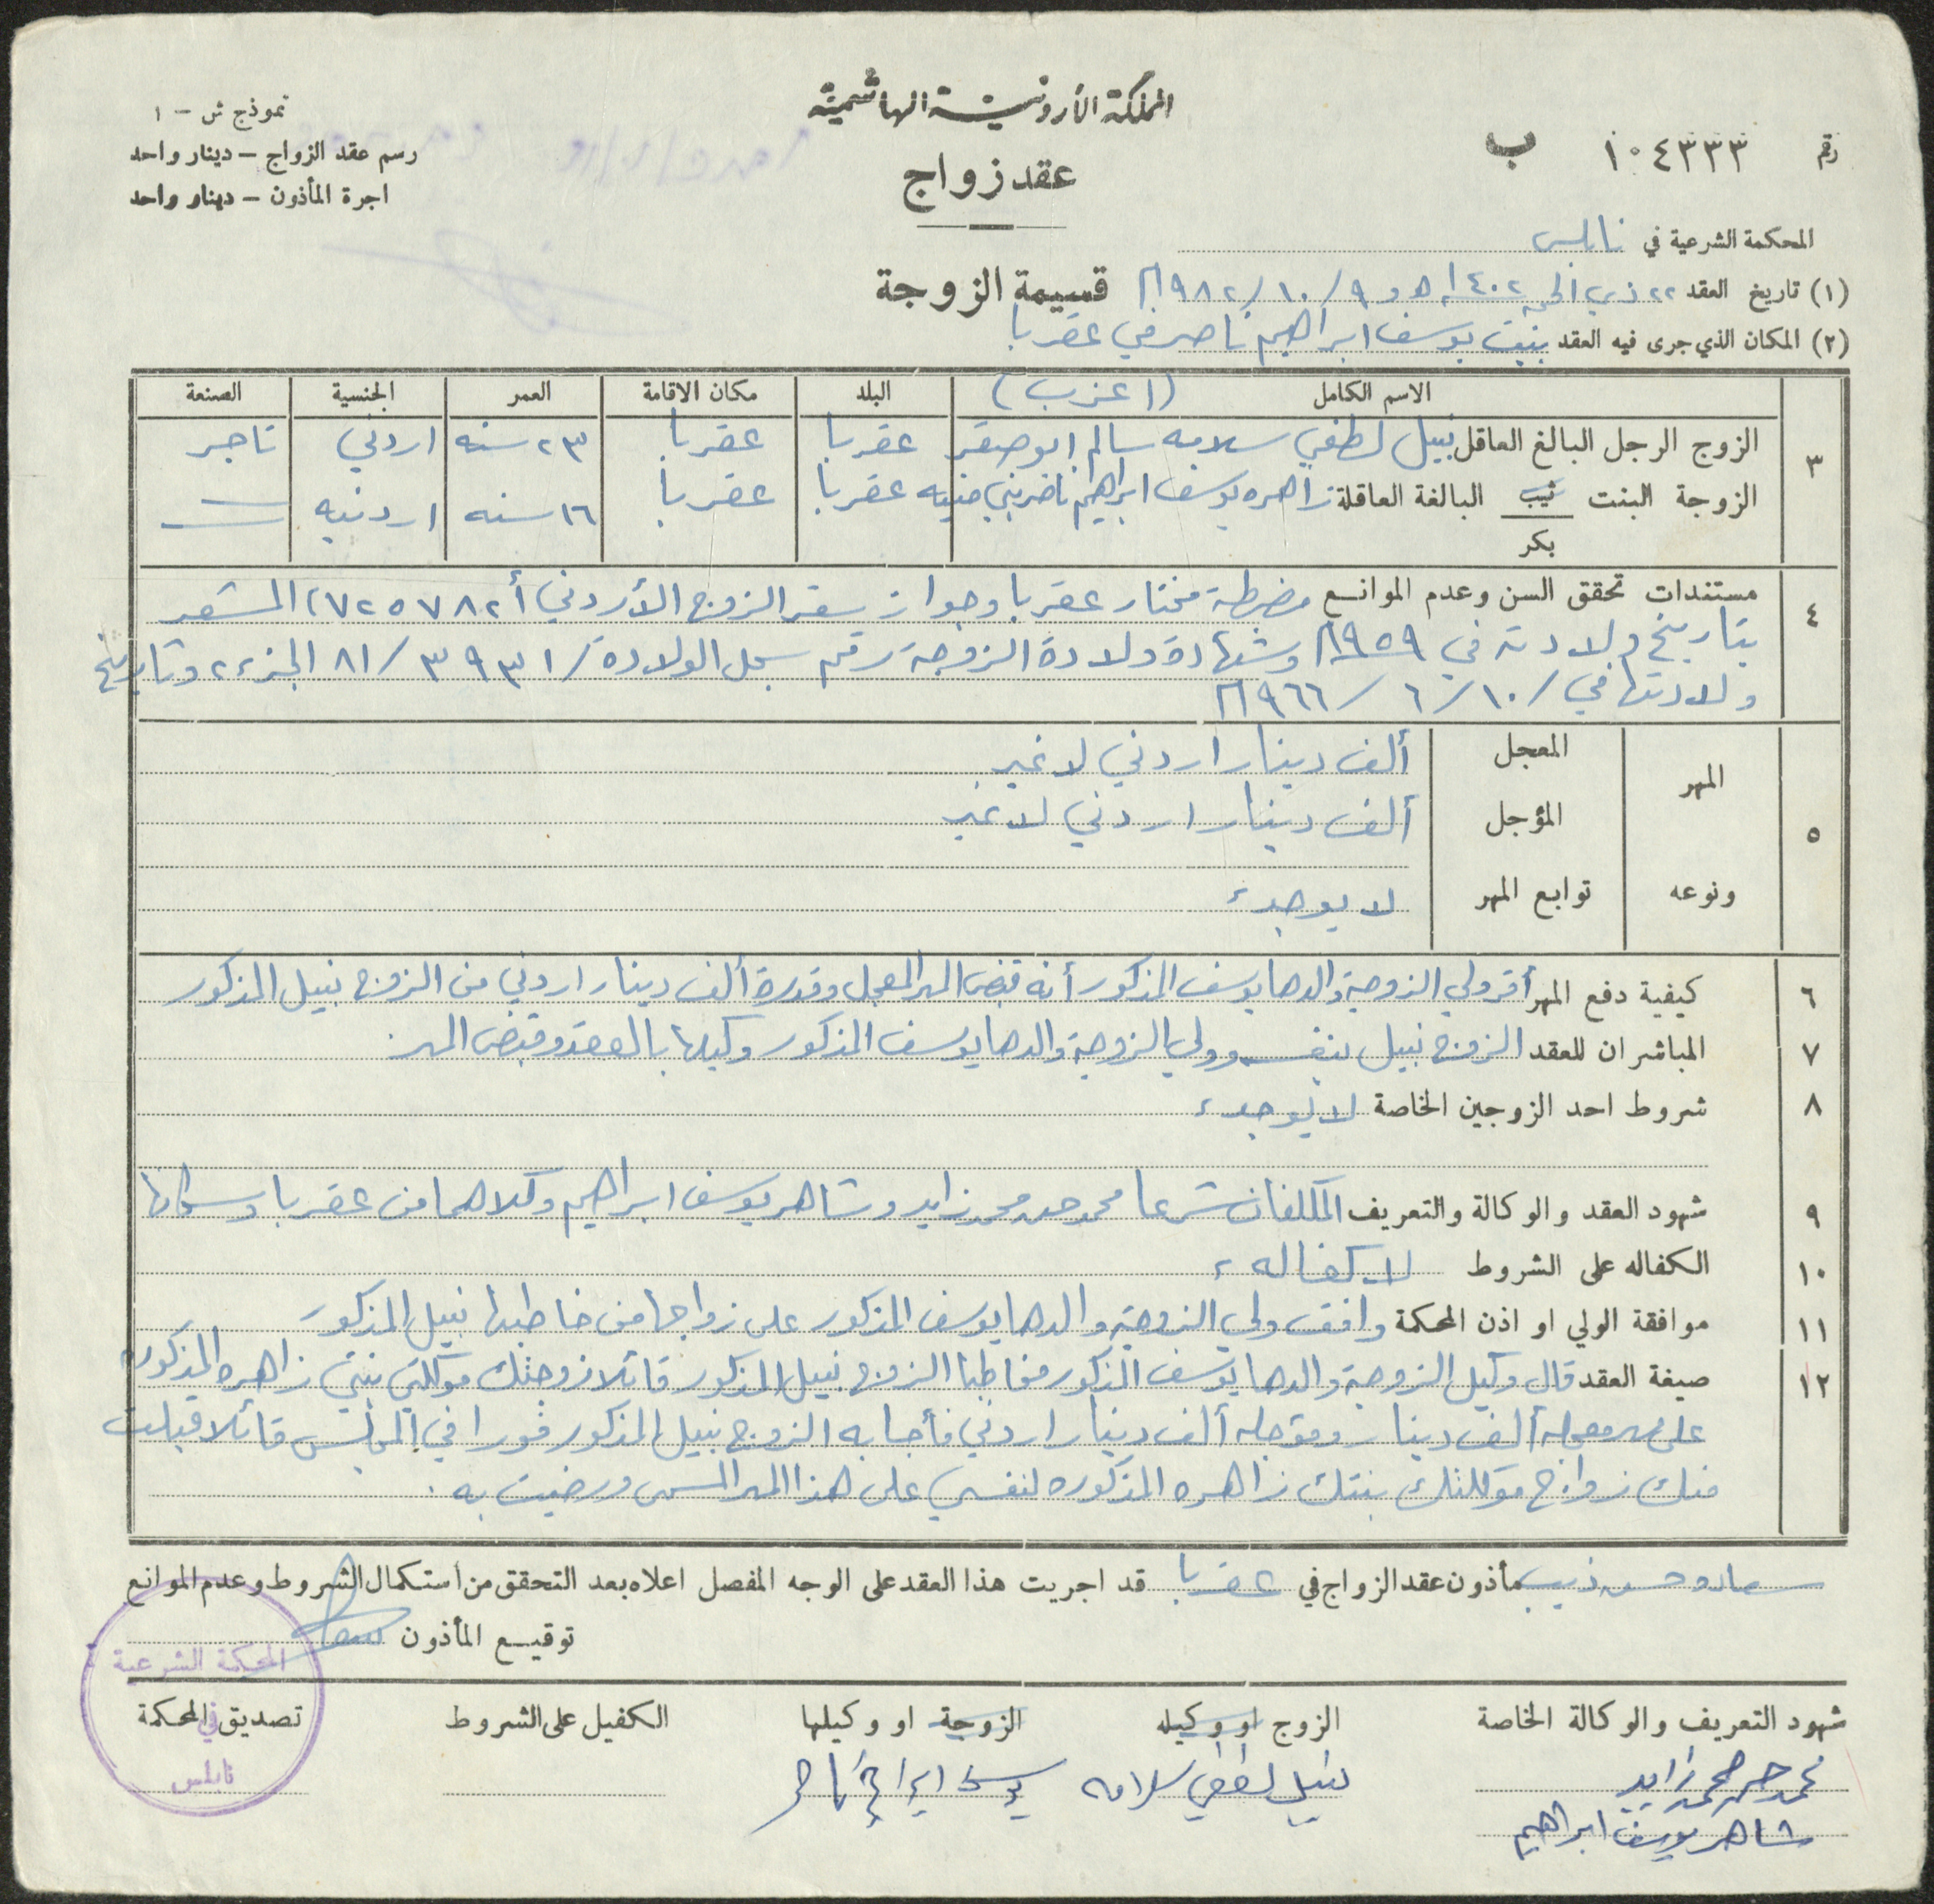 المملكة الأردنية الهاشمية
نموذج ش - ١
رقم ١٠٤٣٣٣ ب
رسم عقد الزواج - دينار واحد
عقد زواج
اجرة المأذون - دينار واحد
المحكمة الشرعية في نابلس
(١) تاريخ العقد ٢٢ ذي الحجة ١٤٠٢هـ و ٩/١٠/١٩٨٢م
قسيمة الزوجة
(٢) المكان الذي جرى فيه العقد بيت يوسف ابراهيم ناصر في عقربا
الاسم الكامل (اعزب) البلد مكان الاقامة العمر الجنسية الصنعة
٣
الزوج الرجل البالغ العاقل نبيل لطفي سلامه سالم ابو صقر عقربا عقربا ٢٣ سنه اردني تاجر
الزوجة البنت ثيب البالغة العاقلة زاهره يوسف ابراهيم ناصر بني منيه عقربا عقربا ١٦ سنه اردنيه
بكر
٤ مستندات تحقق السن وعدم الموانع مضبطة مختار عقربا وجواز سفر الزوج الأردني أ ٧٢٥٧٨٢، المشعر
بتاريخ ولادته في ١٩٥٩م وشهادة ولادة الزوجة رقم سجل الولادة / ٣٩٣١ / ٨١ الجزء ٢ وتاريخ
ولادتها في / ١٠ / ٦ / ١٩٦٦م
٥ المهر المعجل ألف دينار اردني لا غير
المؤجل ألف دينار اردني لا غير
ونوعه توابع المهر لا يوجد،
٦ كيفية دفع المهر أقر ولي الزوجة والدها يوسف المذكور أنه قبض المهر المعجل وقدره ألف دينار اردني من الزوج نبيل المذكور
٧ المباشران للعقد الزوج نبيل بنفسه وولي الزوجة والدها يوسف المذكور وكيلها بالعقد وقبض المهر.
٨ شروط احد الزوجين الخاصة لا يوجد،
٩ شهود العقد والوكالة والتعريف المكلفان شرعا محمد حمد محمد زايد وشاهر يوسف ابراهيم وكلاهما من عقربا وسكانها
١٠ الكفاله على الشروط لا كفاله،
١١ موافقة الولي او اذن المحكمة وافق ولي الزوجة والدها يوسف المذكور على زواجها من خاطبها نبيل المذكور
١٢ صيغة العقد قال وكيل الزوجة والدها يوسف المذكور مخاطبا الزوج نبيل المذكور قائلا زوجتك موكلتي بنتي زاهره المذكوره
على مهر معجله ألف دينار ومؤجله ألف دينار اردني فأجابه الزوج نبيل المذكور فورا في المجلس قائلا قبلت
منك زواج موكلتك بنتك زاهره المذكوره لنفسي على هذا المهر المسمى ورضيت به.
حسن ذيب مأذون عقد الزواج في عقربا قد اجريت هذا العقد على الوجه المفصل اعلاه بعد التحقق من استكمال الشروط وعدم الموانع
توقيع المأذون
المحكمة الشرعية
في
نابلس
شهود التعريف والوكالة الخاصة الزوج او وكيله الزوجة او وكيلها الكفيل على الشروط تصديق المحكمة
محمد حمد محمد زايد نبيل لطفي سلامه يوسف ابراهيم ناصر
شاهر يوسف ابراهيم